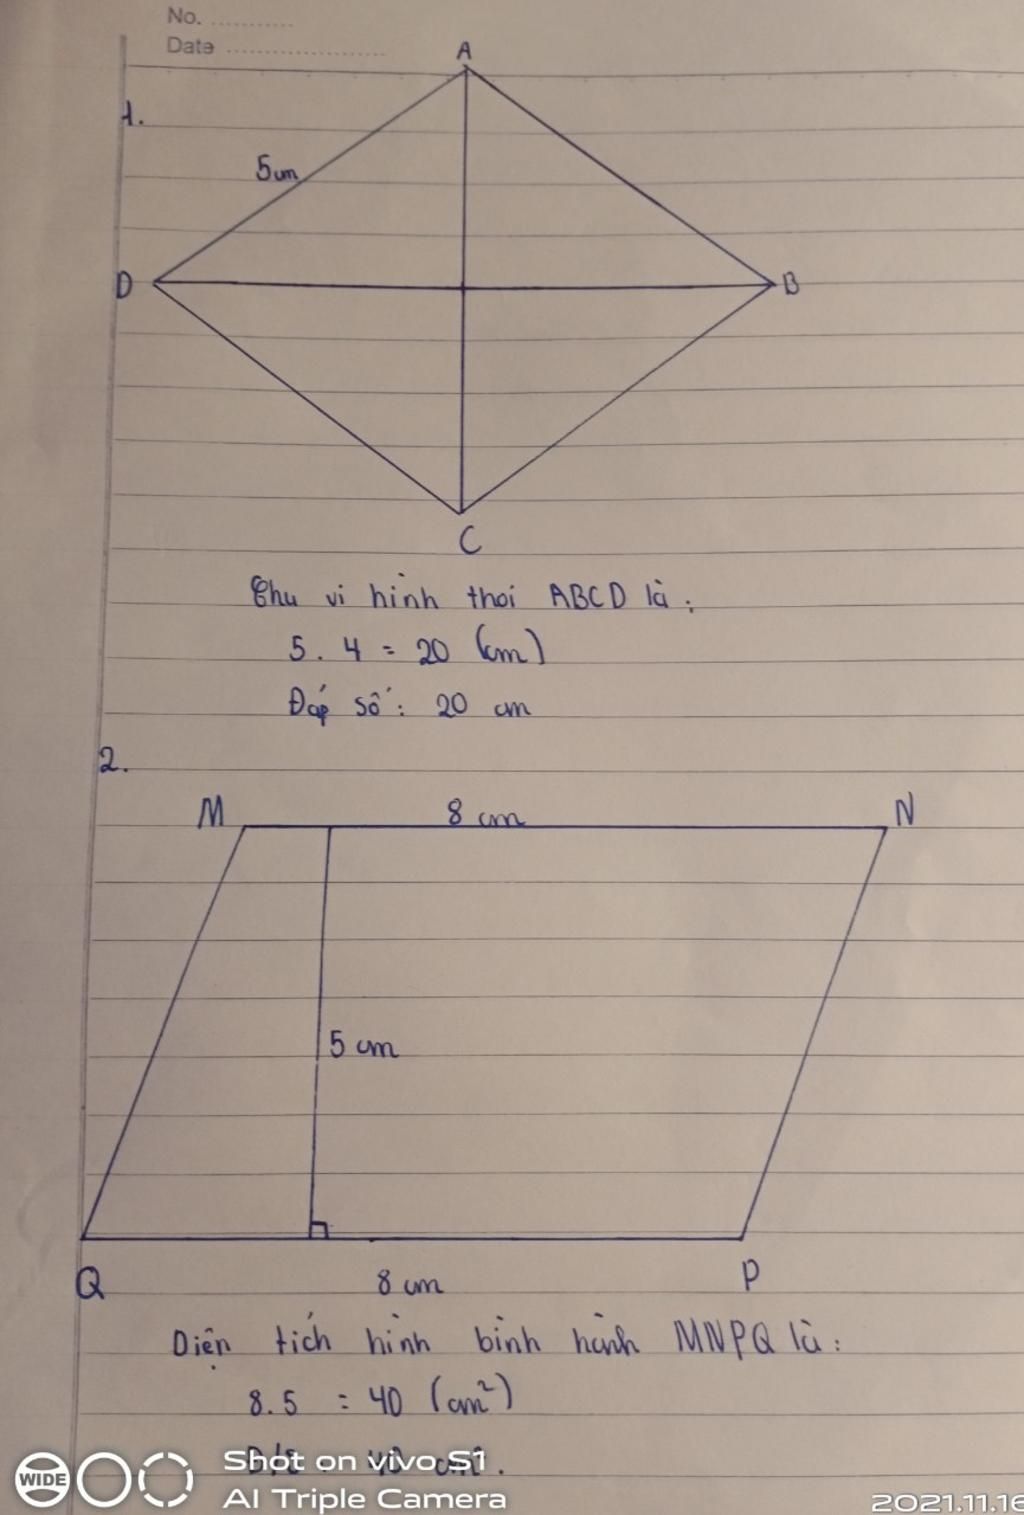 No. ..........
Date ....................
A
1.
5cm
D
B
C
Chu vi hình thoi ABCD là:
5. 4 = 20 (cm)
Đáp số: 20 cm
2.
M
8 cm
N
5 cm
Q
8 cm
P
Diện tích hình bình hành MNPQ là:
8.5 = 40 (cm²)
40 cm².
WIDE
Shot on vivo S1
AI Triple Camera
2021.11.16